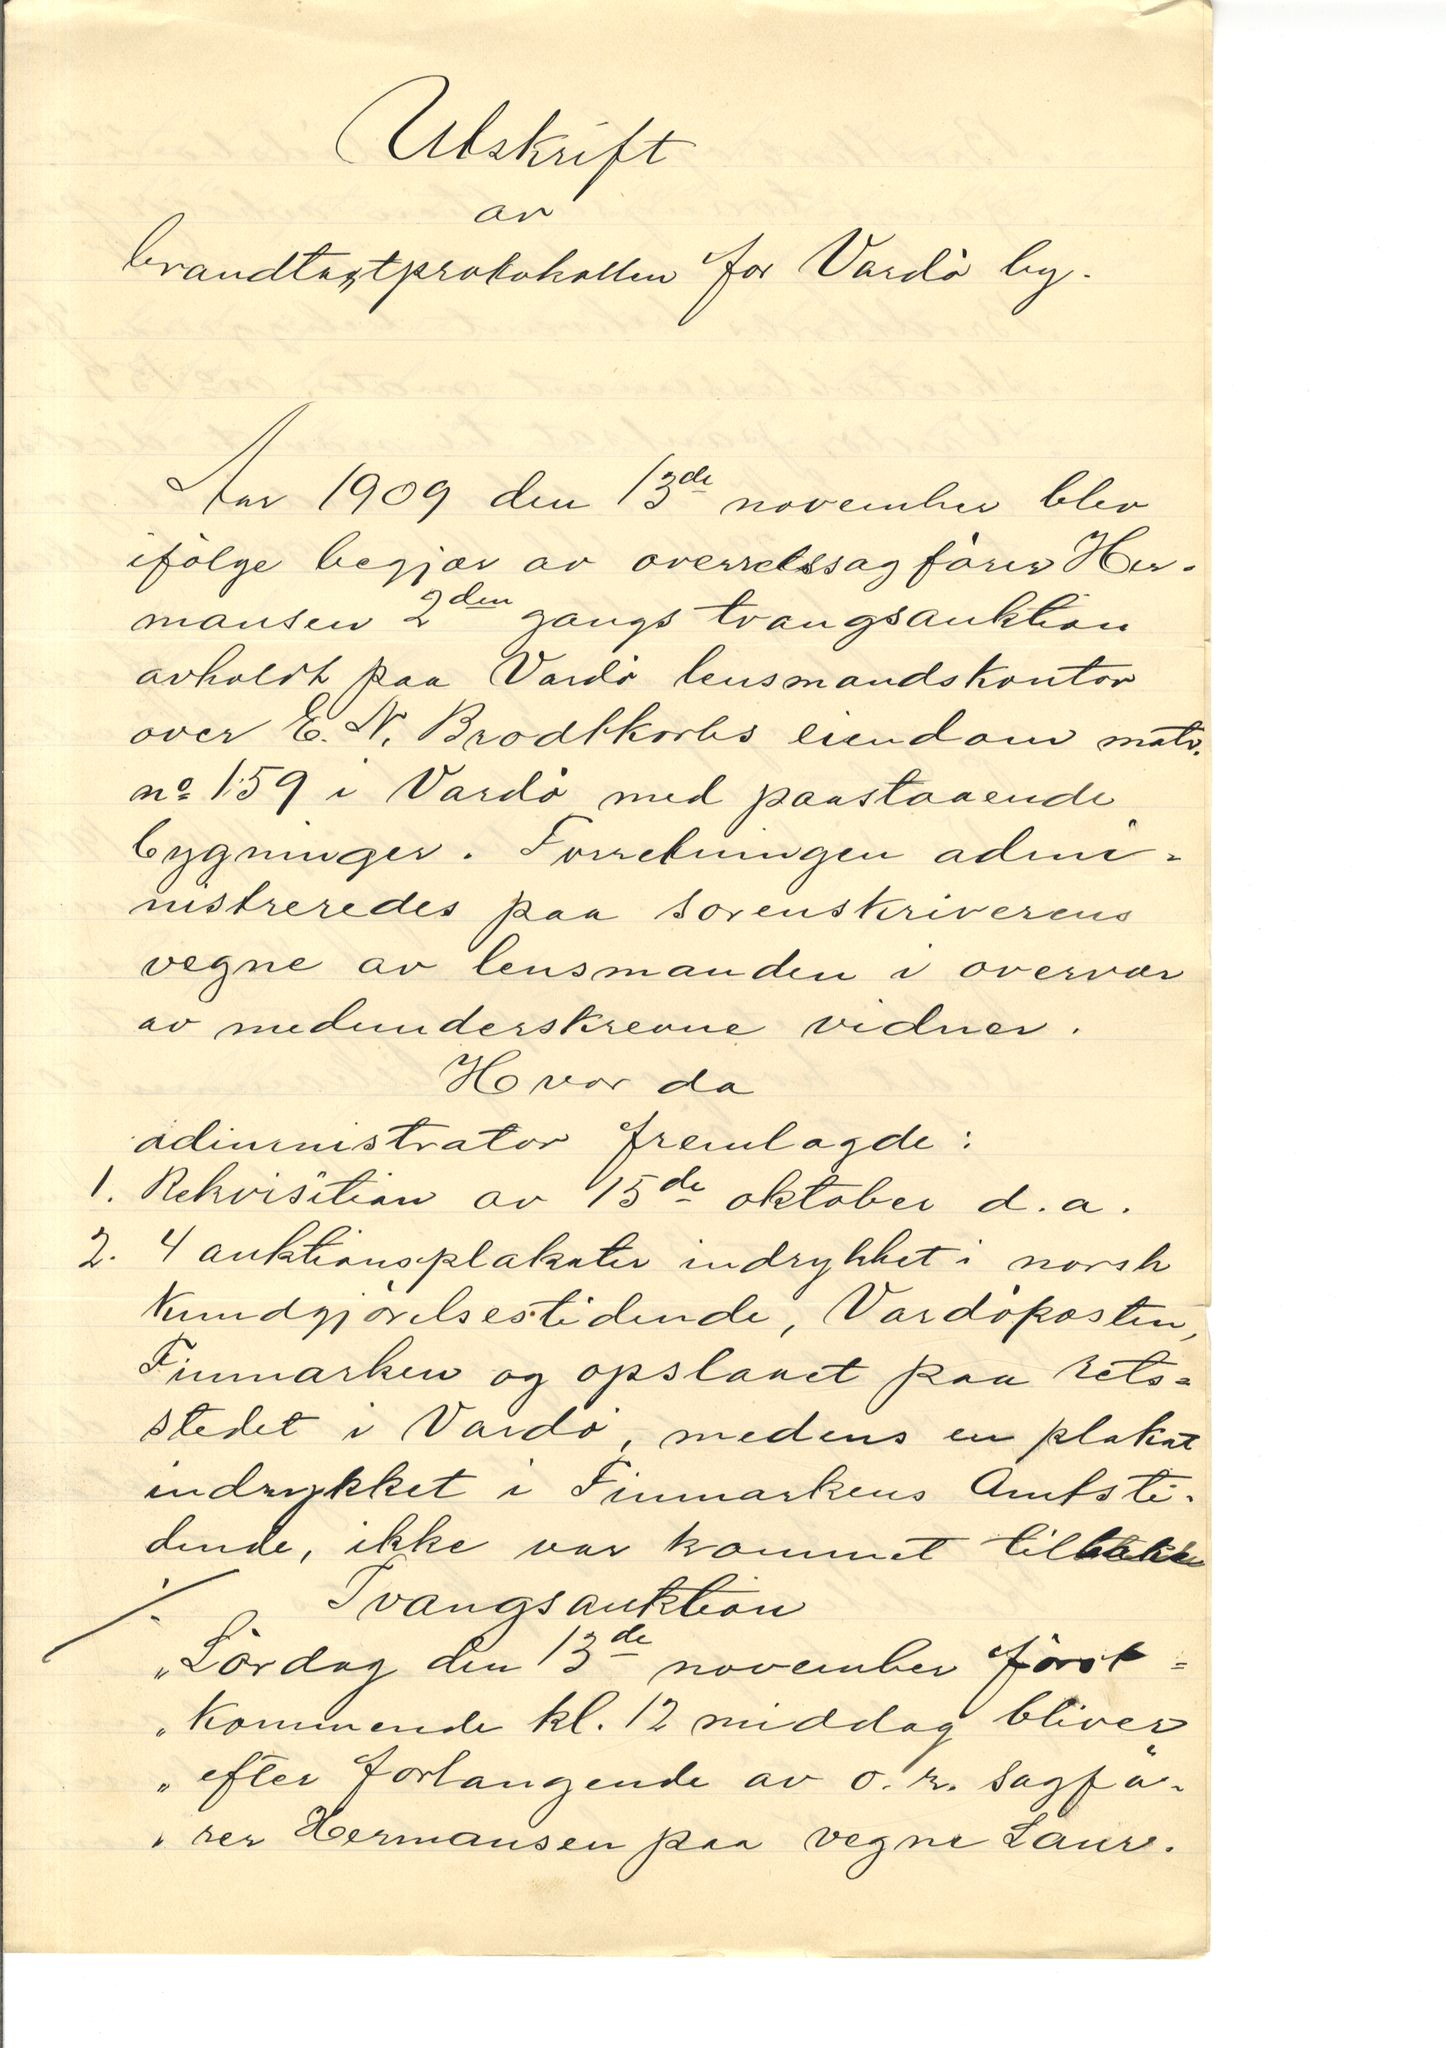 Utskrift
av
brandtagtprotokollen for Vardö by.
Aar 1909 den 13de november blev
ifölge begjær av overretssagförer Her-
mansen 2den gangs tvangsauktion
avholdt paa Vardö lensmandskontor
over E. N. Brodtkorbs eiendom matr.
no 159 i Vardö med paastaaende
bygninger. Forretningen admi-
nistreredes paa sorenskriverens
vegne av lensmanden i overvær
av medunderskrevne vidner.
Hvor da
administrator fremlagde:
1. Rekvisition av 15de oktober d.a.
2. 4 auktionsplakater indrykket i norsk
Kundgjörelsestidende, Vardöposten,
Finmarken og opslaaet paa rets-
stedet i Vardö, medens en plakat
indrykket i Finmarkens Amtsti-
dende, ikke var kommet tilbake
./. Tvangsauktion
"Lördag den 13de november först-
"kommende kl. 12 middag bliver
"efter forlangende av o. r. sagfö-
"rer Hermansen paa vegne Laur.